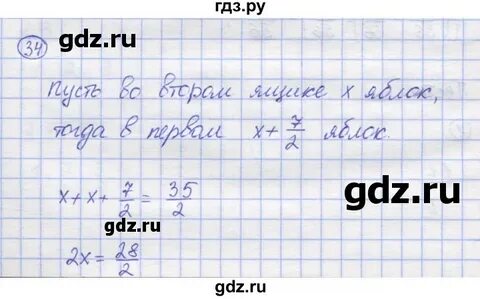 гдз.ру
34
gdz.ru
gdz.ru
Пусть во втором ящике x яблок,
тогда в первом x + 7/2 яблок.
gdz.ru
gdz.ru
x + x + 7/2 = 35/2
2x = 28/2
gdz.ru
gdz.ru